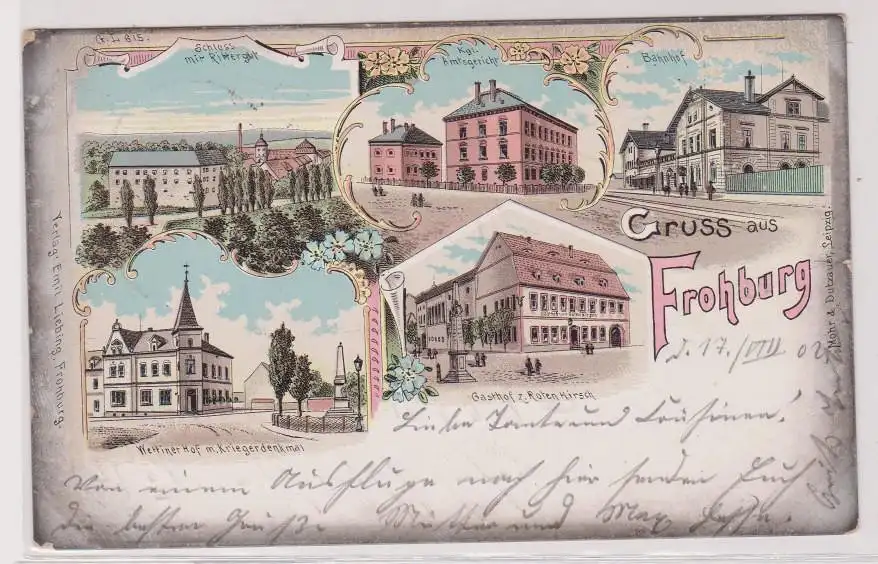 G. L. 815.
Schloss
mit Rittergut
Kgl.
Amtsgericht
Bahnhof
Gruss aus
Frohburg
Wettiner Hof m. Kriegerdenkmal
Gasthof z. Roten Hirsch
Verlag: Emil Liebing, Frohburg.
Mohr & Dutzauer, Leipzig.
d. 17./VIII 02
Liebe Tante und Cousinen!
Von einem Ausfluge nach hier senden Euch
die besten Grüße Mutter und Max